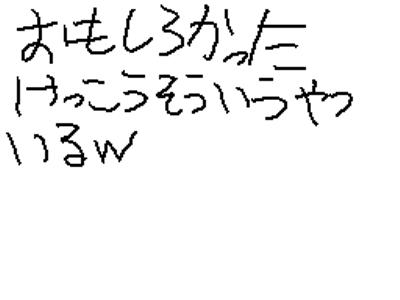 おもしろかったニ
けっこうそういうやつ
いるw